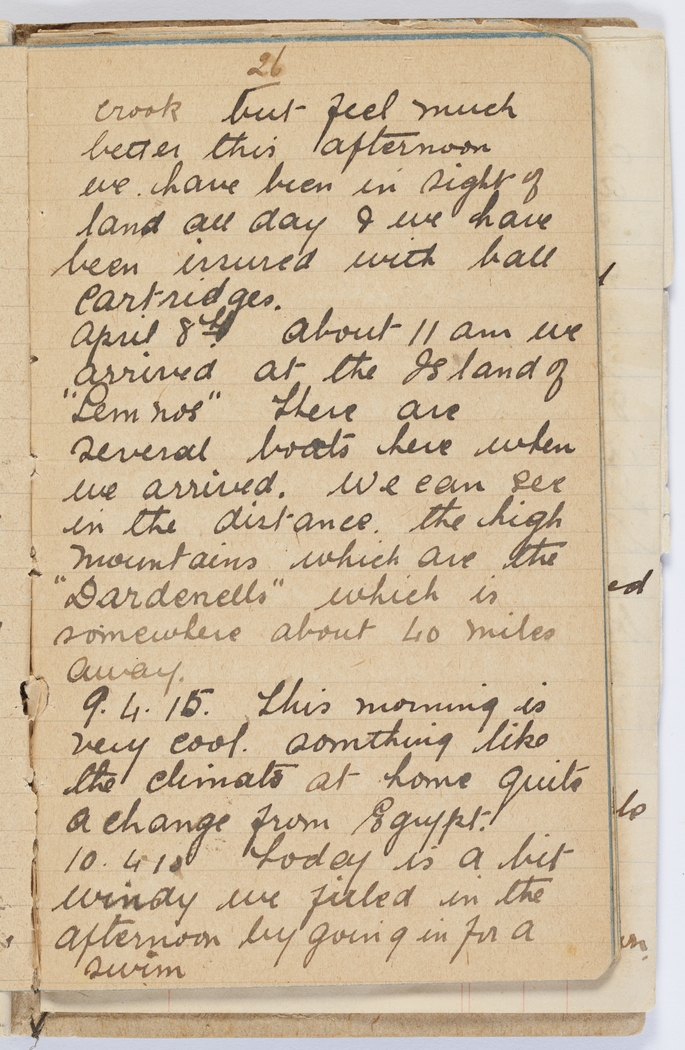 26
crook but feel much
better this afternoon
we have been in sight of
land all day & we have
been issured with ball
cartridges.
April 8th about 11 am we
arrived at the Island of
"Lemnos" There are
several boats here when
we arrived. We can see
in the distance. the high
mountains which are the
"Dardenells" which is
somewhere about 40 miles
away.
9. 4. 15. This morning is
very cool. somthing like
the climate at home quite
a change from Egypt.
10. 4 15 Today is a bit
windy we filled in the
afternoon by going in for a
swim